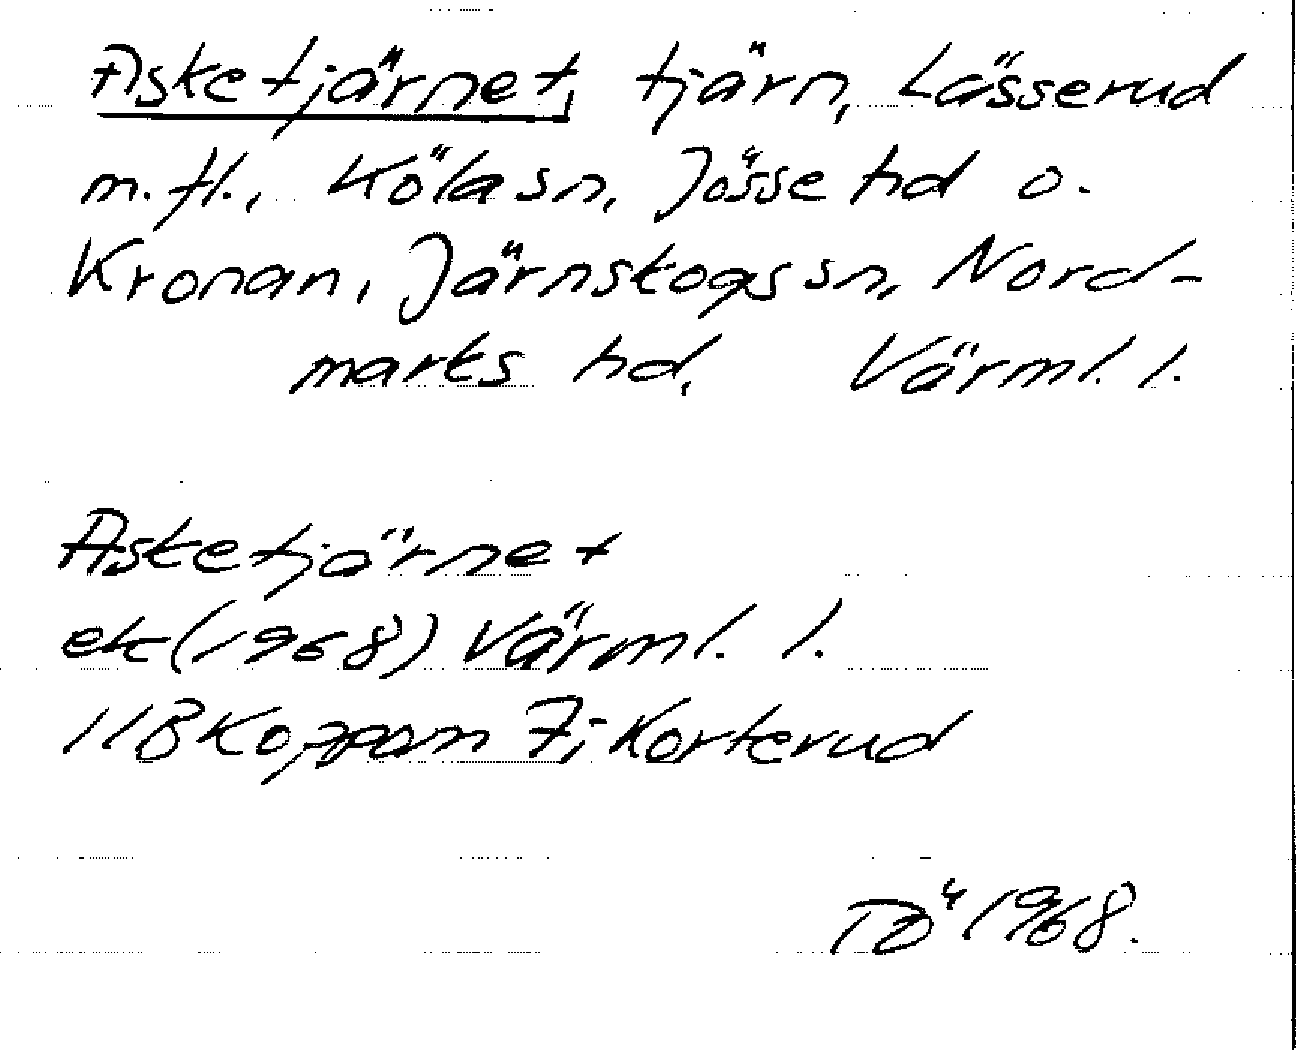 Asketjärnet, tjärn, Lässerud
m. fl., Köla sn, Jösse hd o.
Kronan, Järnskogs sn, Nord-
marks hd, Värml. l.
Asketjärnet
ek (1968) Värml. l.
11B Koppom 7i Korterud
TÖ 1968.